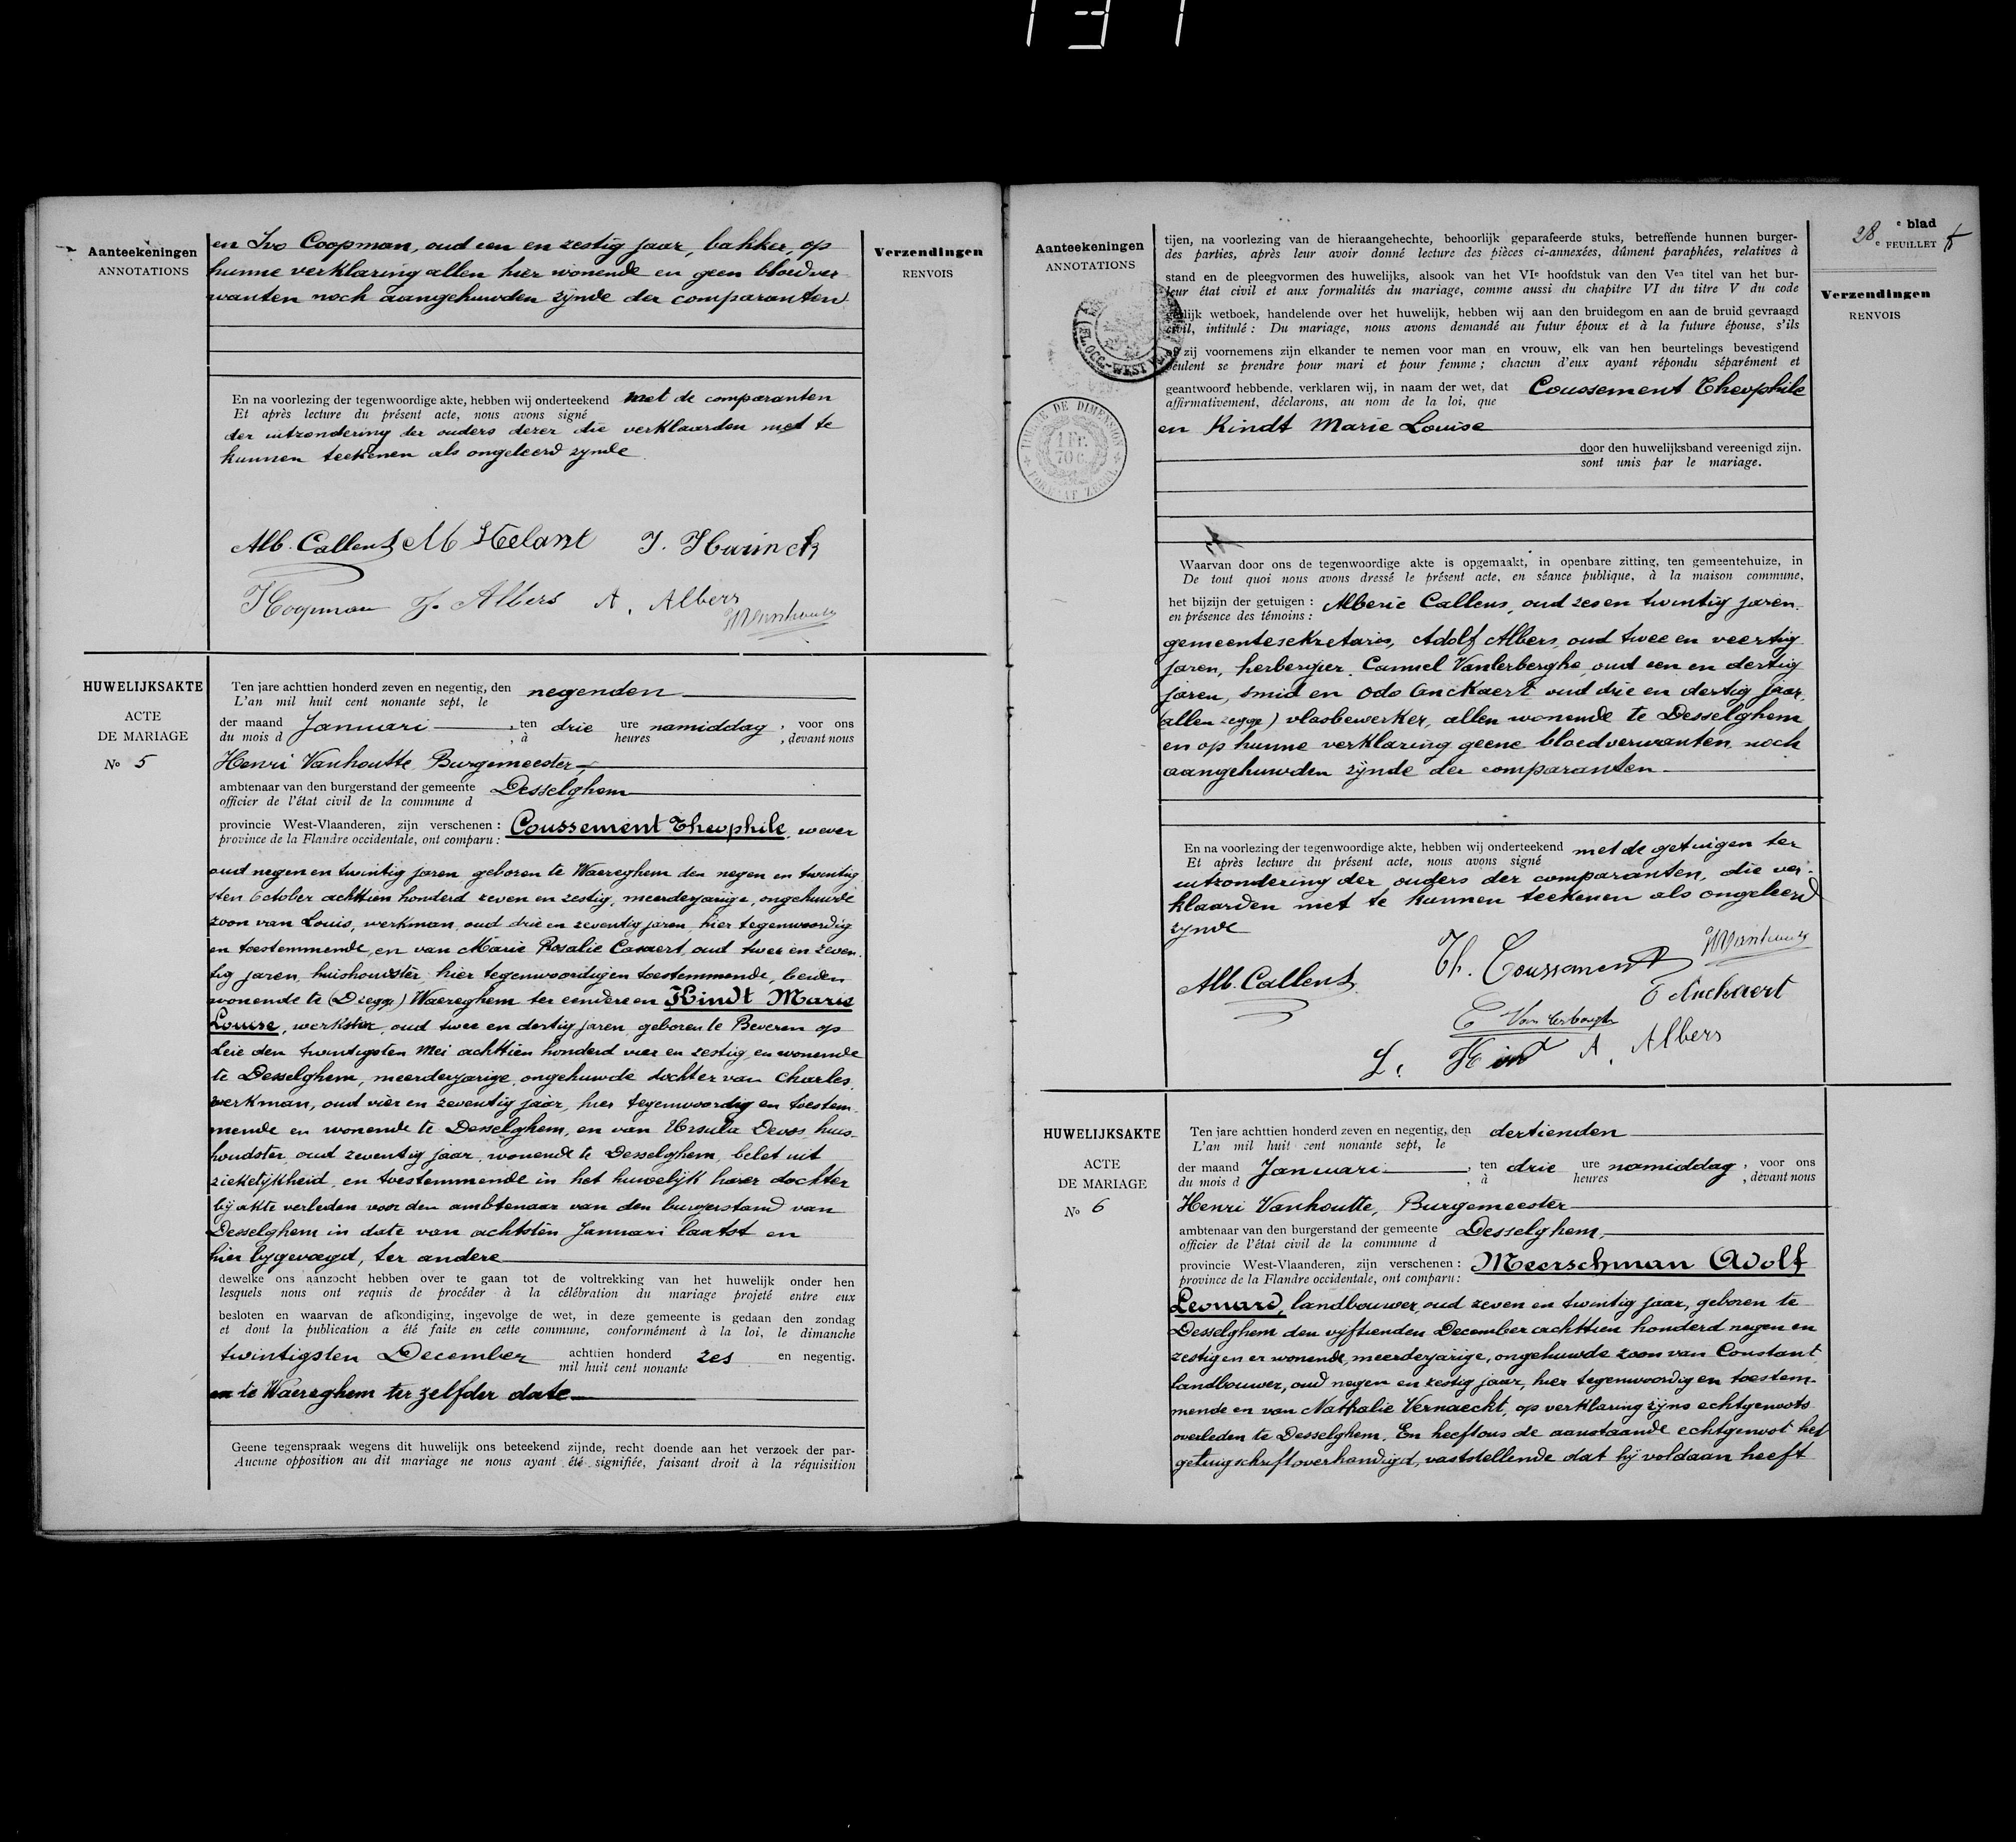 131
Aanteekeningen
ANNOTATIONS
Verzendingen
RENVOIS
en Ivo Coopman, oud een en zestig jaar, bakker, op
hunne verklaring allen hier wonende en geen bloedver
wanten noch aangehuwden zijnde der comparanten
En na voorlezing der tegenwoordige akte, hebben wij onderteekend met de comparanten
Et après lecture du présent acte, nous avons signé
der uitzondering der ouders dezer die verklaarden niet te
kunnen teekenen als ongeleerd zynde
Alb. Callens
J. Albers A. Albers
HUWELIJKSAKTE
ACTE
DE MARIAGE
No 5
Ten jare achttien honderd zeven en negentig, den negenden
L'an mil huit cent nonante sept, le
der maand Januari, ten drie ure namiddag, voor ons
du mois d , à heures , devant nous
Henri Vanhoutte, Burgemeester
ambtenaar van den burgerstand der gemeente Desselghem
officier de l'état civil de la commune d
provincie West-Vlaanderen, zijn verschenen : Coussement Theophile, wever
province de la Flandre occidentale, ont comparu :
oud negen en twintig jaren geboren te Waereghem den negen en twintig
sten October achttien honderd zeven en zestig, meerderjarige, ongehuwde
zoon van Louis, werkman, oud drie en zeventig jaren, hier tegenwoordig
en toestemmende, en van Marie Rosalie Casaert, oud twee en zeven
tig jaren, huishoudster hier tegenwoordig en toestemmende, beiden
wonende te (D zegge) Waereghem ter eendere en Kindt Marie
Louise, werkster, oud twee en dertig jaren, geboren te Beveren op
Leie den twintigsten Mei achttien honderd vier en zestig, en wonende
te Desselghem, meerderjarige, ongehuwde dochter van Charles,
werkman, oud vier en zeventig jaar, hier tegenwoordig en toestem
mende en wonende te Desselghem, en van Ursula Devos, huis-
houdster, oud zeventig jaar, wonende te Desselghem, belet uit
ziekelijkheid, en toestemmende in het huwelijk harer dochter
bij akte verleden voor den ambtenaar van den burgerstand van
Desselghem in date van achtsten Januari laatst en
hier bijgevoegd, ter andere
dewelke ons aanzocht hebben over te gaan tot de voltrekking van het huwelijk onder hen
lesquels nous ont requis de procéder à la célébration du mariage projeté entre eux
besloten en waarvan de afkondiging, ingevolge de wet, in deze gemeente is gedaan den zondag
et dont la publication a été faite en cette commune, conformément à la loi, le dimanche
twintigsten December achttien honderd zes en negentig.
mil huit cent nonante
en te Waereghem ter zelfder date
Geene tegenspraak wegens dit huwelijk ons beteekend zijnde, recht doende aan het verzoek der par-
Aucune opposition au dit mariage ne nous ayant été signifiée, faisant droit à la réquisition
28 e blad
e FEUILLET
Aanteekeningen
ANNOTATIONS
Verzendingen
RENVOIS
TIMBRE DE DIMENSION
1 FR.
70 C.
FORMAAT ZEGEL
tijen, na voorlezing van de hieraangehechte, behoorlijk geparafeerde stuks, betreffende hunnen burger-
des parties, après leur avoir donné lecture des pièces ci-annexées, dûment paraphées, relatives à
stand en de pleegvormen des huwelijks, alsook van het VIe hoofdstuk van den Ven titel van het bur-
leur état civil et aux formalités du mariage, comme aussi du chapitre VI du titre V du code
gerlijk wetboek, handelende over het huwelijk, hebben wij aan den bruidegom en aan de bruid gevraagd
civil, intitulé : Du mariage, nous avons demandé au futur époux et à la future épouse, s'ils
of zij voornemens zijn elkander te nemen voor man en vrouw, elk van hen beurtelings bevestigend
veulent se prendre pour mari et pour femme ; chacun d'eux ayant répondu séparément et
geantwoord hebbende, verklaren wij, in naam der wet, dat Coussement Theophile
affirmativement, déclarons, au nom de la loi, que
en Kindt Marie Louise
door den huwelijksband vereenigd zijn.
sont unis par le mariage.
Waarvan door ons de tegenwoordige akte is opgemaakt, in openbare zitting, ten gemeentehuize, in
De tout quoi nous avons dressé le présent acte, en séance publique, à la maison commune,
het bijzijn der getuigen : Alberic Callens, oud zes en twintig jaren,
en présence des témoins :
gemeentesekretaris, Adolf Albers, oud twee en veertig
jaren, herbergier, Camiel Vanlerberghe, oud een en dertig
jaren, smid en Odo Anckaert oud drie en dertig jaar,
(allen zegge) vlasbewerker, allen wonende te Desselghem
en op hunne verklaring geene bloedverwanten noch
aangehuwden zijnde der comparanten
En na voorlezing der tegenwoordige akte, hebben wij onderteekend met de getuigen ter
Et après lecture du présent acte, nous avons signé
uitzondering der ouders der comparanten, die ver-
klaarden niet te kunnen teekenen als ongeleerd
zynde
Th. Coussement
Alb. Callens
Anckaert
A. Albers
HUWELIJKSAKTE
ACTE
DE MARIAGE
No 6
Ten jare achttien honderd zeven en negentig, den dertienden
L'an mil huit cent nonante sept, le
der maand Januari, ten drie ure namiddag, voor ons
du mois d , à heures , devant nous
Henri Vanhoutte, Burgemeester
ambtenaar van den burgerstand der gemeente Desselghem,
officier de l'état civil de la commune d
provincie West-Vlaanderen, zijn verschenen : Meerschman Adolf
province de la Flandre occidentale, ont comparu :
Leonard, landbouwer, oud zeven en twintig jaar, geboren te
Desselghem den vijftienden December achttien honderd negen en
zestig en er wonende, meerderjarige, ongehuwde zoon van Constant,
landbouwer, oud negen en zestig jaar, hier tegenwoordig en toestem-
mende en van Nathalie Vernaeckt, op verklaring zijns echtgenoots
overleden te Desselghem. En heeft ons de aanstaande echtgenoot het
getuigschrift overhandigd, vaststellende dat hij voldaan heeft